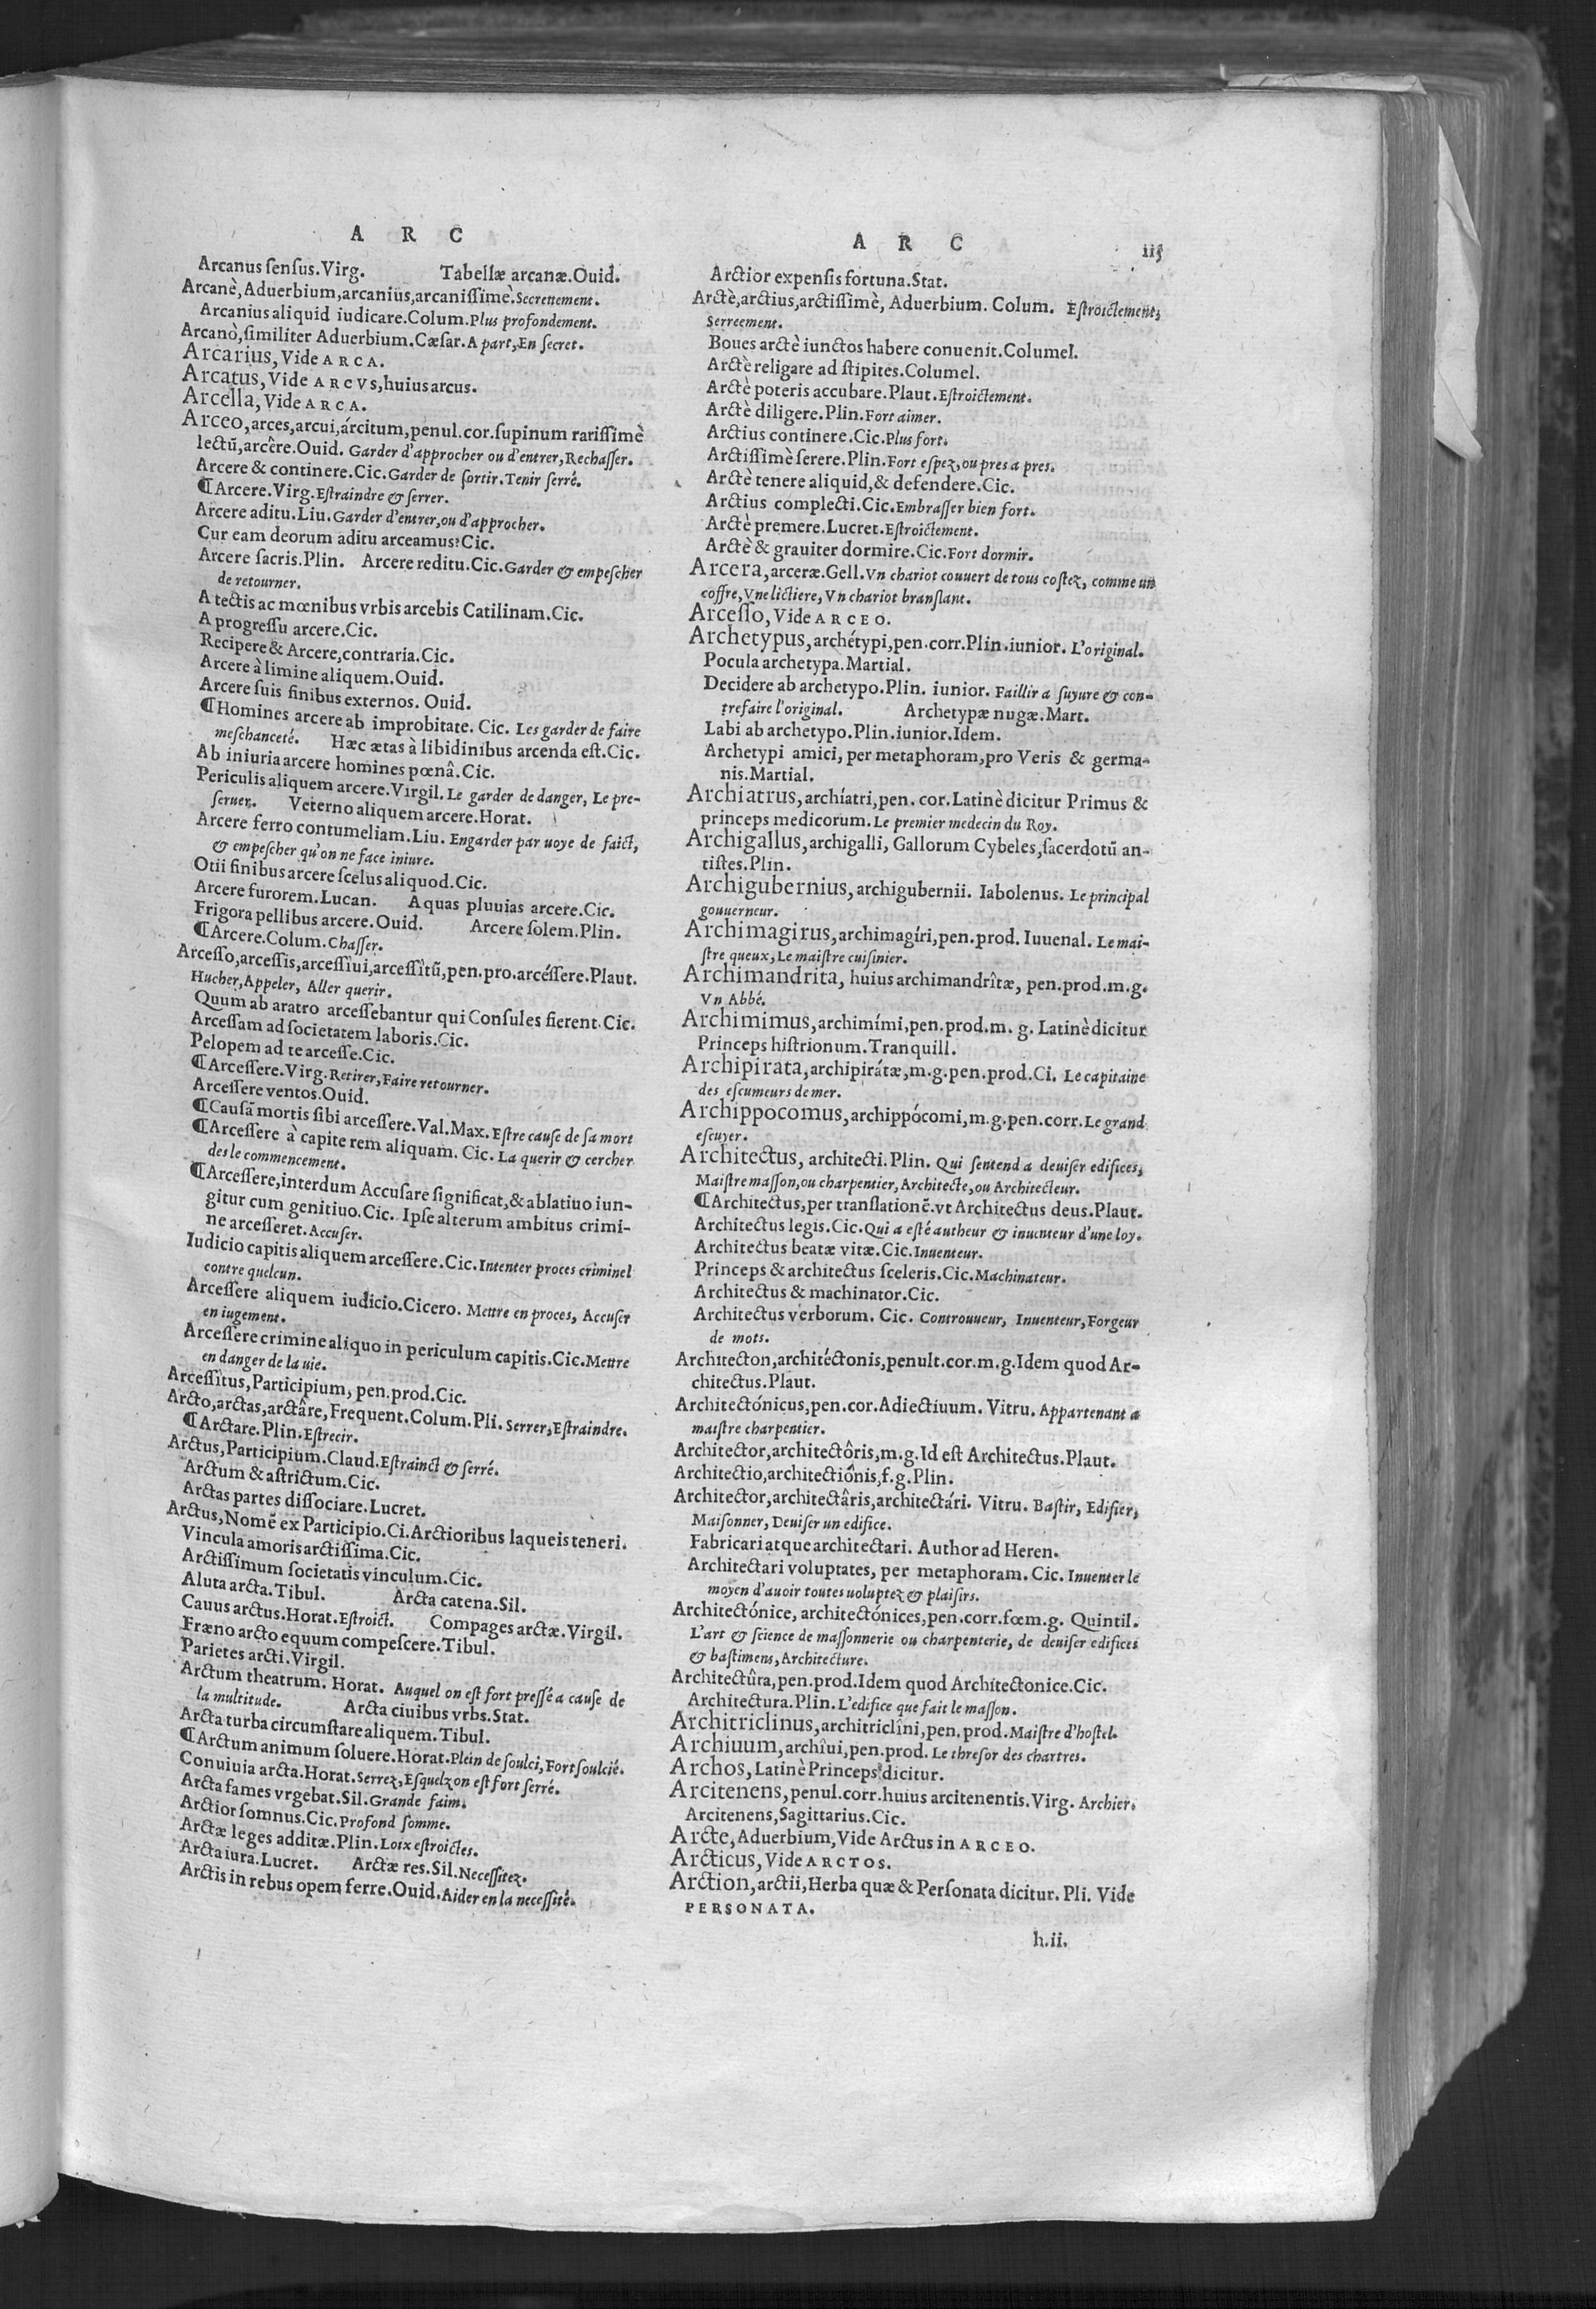 A R C
Arcanus ſenſus.Virg. Tabellæ arcanæ.Ouid.
Arcanè, Aduerbium, arcaniùs, arcaniſſimè. Secrettement.
Arcanius aliquid iudicare.Colum. Plus profondement.
Arcanò, ſimiliter Aduerbium.Cæſar. A part, En ſecret.
Arcarius, Vide ARCA.
Arcatus, Vide ARCVS, huius arcus.
Arcella, Vide ARCA.
Arceo, arces, arcui, árcitum, penul.cor.ſupinum rariſſimè
lectũ, arcêre.Ouid. Garder d'approcher ou d'entrer, Rechaſſer.
Arcere & continere.Cic. Garder de ſortir. Tenir ſerré.
¶Arcere.Virg. Eſtraindre & ſerrer.
Arcere aditu.Liu. Garder d'entrer, ou d'approcher.
Cur eam deorum aditu arceamus? Cic.
Arcere ſacris.Plin. Arcere reditu.Cic. Garder & empeſcher
de retourner.
A tectis ac mœnibus vrbis arcebis Catilinam.Cic.
A progreſſu arcere.Cic.
Recipere & Arcere, contraria.Cic.
Arcere à limine aliquem.Ouid.
Arcere ſuis finibus externos. Ouid.
¶Homines arcere ab improbitate. Cic. Les garder de faire
meſchanceté. Hæc ætas à libidinibus arcenda eſt.Cic.
Ab iniuria arcere homines pœnâ.Cic.
Periculis aliquem arcere.Virgil. Le garder de danger, Le pre-
ſeruer. Veterno aliquem arcere.Horat.
Arcere ferro contumeliam.Liu. Engarder par uoye de faict,
& empeſcher qu'on ne face iniure.
Otii finibus arcere ſcelus aliquod.Cic.
Arcere furorem.Lucan. Aquas pluuias arcere.Cic.
Frigora pellibus arcere.Ouid. Arcere ſolem.Plin.
¶Arcere.Colum. Chaſſer.
Arceſſo, arceſſis, arceſſîui, arceſſîtũ, pen.pro.arcéſſere.Plaut.
Hucher, Appeler, Aller querir.
Quum ab aratro arceſſebantur qui Conſules fierent. Cic.
Arceſſam ad ſocietatem laboris.Cic.
Pelopem ad te arceſſe.Cic.
¶Arceſſere.Virg. Retirer, Faire retourner.
Arceſſere ventos.Ouid.
¶Cauſã mortis ſibi arceſſere.Val.Max. Eſtre cauſe de ſa mort
¶Arceſſere à capite rem aliquam. Cic. La querir & cercher
des le commencement.
¶Arceſſere, interdum Accuſare ſignificat, & ablatiuo iun-
gitur cum genitiuo.Cic. Ipſe alterum ambitus crimi-
ne arceſſeret. Accuſer.
Iudicio capitis aliquem arceſſere.Cic. Intenter proces criminel
contre quelcun.
Arceſſere aliquem iudicio.Cicero. Mettre en proces, Accuſer
en iugement.
Arceſſere crimine aliquo in periculum capitis.Cic. Mettre
en danger de la uie.
Arceſſitus, Participium, pen.prod.Cic.
Arcto, arctas, arctâre, Frequent.Colum.Pli. Serrer, Eſtraindre.
¶Arctare.Plin. Eſtrecir.
Arctus, Participium.Claud. Eſtrainct & ſerré.
Arctum & aſtrictum.Cic.
Arctas partes diſſociare.Lucret.
Arctus, Nomẽ ex Participio.Ci.Arctioribus laqueis teneri.
Vincula amoris arctiſſima.Cic.
Arctiſſimum ſocietatis vinculum.Cic.
Aluta arcta.Tibul. Arcta catena.Sil.
Cauus arctus.Horat. Eſtroict. Compages arctæ.Virgil.
Fræno arcto equum compeſcere.Tibul.
Parietes arcti.Virgil.
Arctum theatrum. Horat. Auquel on eſt fort preſſé a cauſe de
la multitude. Arcta ciuibus vrbs.Stat.
Arcta turba circumſtare aliquem.Tibul.
¶Arctum animum ſoluere.Horat. Plein de ſoulci, Fort ſoulcié.
Conuiuia arcta.Horat. Serrez, Eſquelz on eſt fort ſerré.
Arcta fames vrgebat.Sil. Grande faim.
Arctior ſomnus.Cic. Profond ſomme.
Arctæ leges additæ.Plin. Loix eſtroictes.
Arcta iura.Lucret. Arctæ res.Sil. Neceſſitez.
Arctis in rebus opem ferre.Ouid. Aider en la neceſſité.
A R C
Arctior expenſis fortuna.Stat.
Arctè, arctius, arctiſſimè, Aduerbium. Colum. Eſtroictement,
Serreement.
Boues arctè iunctos habere conuenit.Columel.
Arctè religare ad ſtipites.Columel.
Arctè poteris accubare.Plaut. Eſtroictement.
Arctè diligere.Plin. Fort aimer.
Arctius continere.Cic. Plus fort.
Arctiſſimè ſerere.Plin. Fort eſpez, ou pres a pres.
Arctè tenere aliquid, & defendere.Cic.
Arctius complecti.Cic. Embraſſer bien fort.
Arctè premere.Lucret. Eſtroictement.
Arctè & grauiter dormire.Cic. Fort dormir.
Arcera, arceræ.Gell. Vn chariot couuert de tous coſtez, comme un
coffre, Vne lictiere, Vn chariot branſlant.
Arceſſo, Vide ARCEO.
Archetypus, archétypi, pen.corr.Plin.iunior. L'original.
Pocula archetypa.Martial.
Decidere ab archetypo.Plin. iunior. Faillir a ſuyure & con-
trefaire l'original. Archetypæ nugæ.Mart.
Labi ab archetypo.Plin.iunior.Idem.
Archetypi amici, per metaphoram, pro Veris & germa-
nis.Martial.
Archiatrus, archíatri, pen. cor.Latinè dicitur Primus &
princeps medicorum. Le premier medecin du Roy.
Archigallus, archigalli, Gallorum Cybeles, ſacerdotũ an-
tiſtes.Plin.
Archigubernius, archigubernii. Iabolenus. Le principal
gouuerneur.
Archimagirus, archimagíri, pen.prod. Iuuenal. Le mai-
ſtre queux, Le maiſtre cuiſinier.
Archimandrita, huius archimandrîtæ, pen.prod.m.g.
Vn Abbé.
Archimimus, archimími, pen.prod.m. g. Latinè dicitur
Princeps hiſtrionum.Tranquill.
Archipirata, archipirátæ, m.g.pen.prod.Ci. Le capitaine
des eſcumeurs de mer.
Archippocomus, archippócomi, m.g.pen.corr. Le grand
eſcuyer.
Architectus, architecti.Plin. Qui ſentend a deuiſer edifices,
Maiſtre maſſon, ou charpentier, Architecte, ou Architecteur.
¶Architectus, per translationẽ.vt Architectus deus.Plaut.
Architectus legis.Cic. Qui a eſté autheur & inuenteur d'une loy.
Architectus beatæ vitæ.Cic. Inuenteur.
Princeps & architectus ſceleris.Cic. Machinateur.
Architectus & machinator.Cic.
Architectus verborum. Cic. Controuueur, Inuenteur, Forgeur
de mots.
Architecton, architéctonis, penult.cor.m.g.Idem quod Ar-
chitectus.Plaut.
Architectónicus, pen.cor.Adiectiuum. Vitru. Appartenant a
maiſtre charpentier.
Architector, architectôris, m.g.Id eſt Architectus.Plaut.
Architectio, architectiônis, f.g.Plin.
Architector, architectâris, architectári. Vitru. Baſtir, Edifier,
Maiſonner, Deuiſer un edifice.
Fabricari atque architectari. Author ad Heren.
Architectari voluptates, per metaphoram. Cic. Inuenter le
moyen d'auoir toutes uoluptez & plaiſirs.
Architectónice, architectónices, pen.corr.fœm.g. Quintil.
L'art & ſcience de maſſonnerie ou charpenterie, de deuiſer edifices
& baſtimens, Architecture.
Architectûra, pen.prod.Idem quod Architectonice.Cic.
Architectura.Plin. L'edifice que fait le maſſon.
Architriclinus, architriclîni, pen.prod. Maiſtre d'hoſtel.
Archiuum, archîui, pen.prod. Le threſor des chartres.
Archos, Latinè Princeps dicitur.
Arcitenens, penul.corr.huius arcitenentis.Virg. Archier.
Arcitenens, Sagittarius.Cic.
Arcte, Aduerbium, Vide Arctus in ARCEO.
Arcticus, Vide ARCTOS.
Arction, arctii, Herba quæ & Perſonata dicitur. Pli. Vide
PERSONATA.
h.ii.